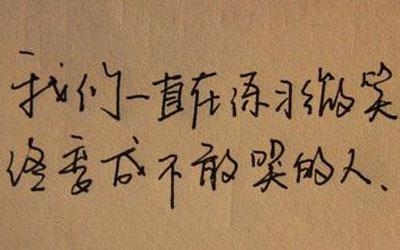 我们一直在练习微笑
终变成不敢哭的人、